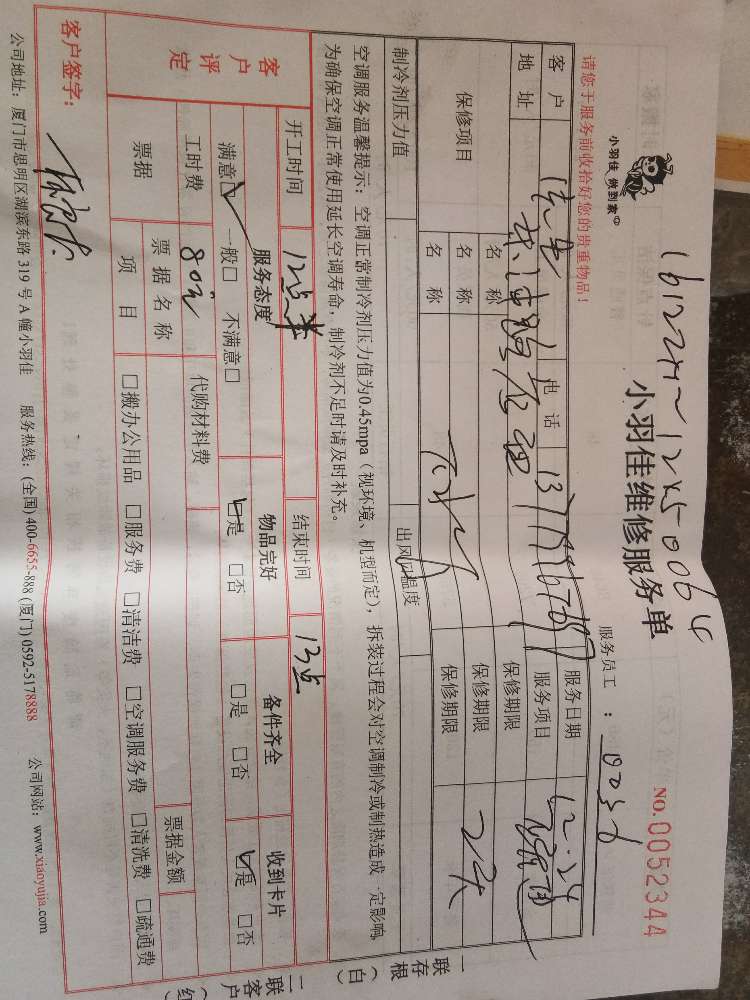 小羽佳 做到家
小羽佳维修服务单
NO.0052344
请您于服务前收拾好您的贵重物品！
服务员工：
客户 电话 服务日期
地址 服务项目
保修项目 名称 保修期限
名称 保修期限 2天
名称 保修期限
制冷剂压力值 出风口温度
空调服务温馨提示：空调正常制冷剂压力值为0.45mpa（视环境、机型而定），拆装过程会对空调制冷或制热造成一定影响，
为确保空调正常使用延长空调寿命，制冷剂不足时请及时补充。
开工时间 12点半 结束时间 13点
客户评定
服务态度 物品完好 备件齐全 收到卡片
满意☑ 一般□ 不满意□ ☑是 □否 □是 □否 ☑是 □否
工时费 80元 代购材料费
票据 票据名称 票据金额
项目 □搬办公用品 □服务费 □清洁费 □空调服务费 □清洗费 □疏通费
客户签字：
公司地址：厦门市思明区湖滨东路319号A幢小羽佳 服务热线：(全国) 400-6655-888 (厦门) 0592-5178888 公司网站：www.xiaoyujia.com
一联存根（白）
二联客户（红